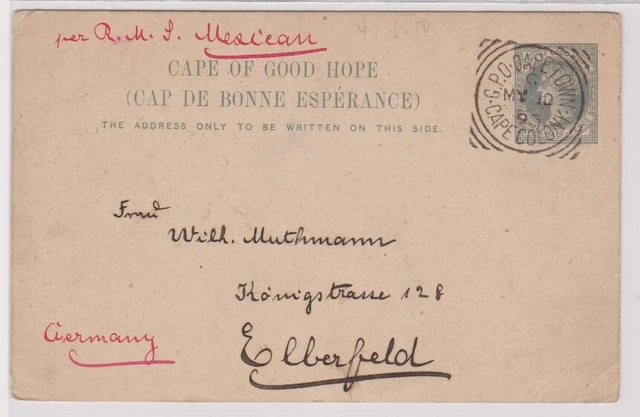 per R. M. S. Mexican
CAPE OF GOOD HOPE
(CAP DE BONNE ESPÉRANCE)
THE ADDRESS ONLY TO BE WRITTEN ON THIS SIDE.
G.P.O. CAPETOWN.
MY 10
CAPE COLONY
Frau
Wilh. Muthmann
Königstrasse 128
Elberfeld
Germany